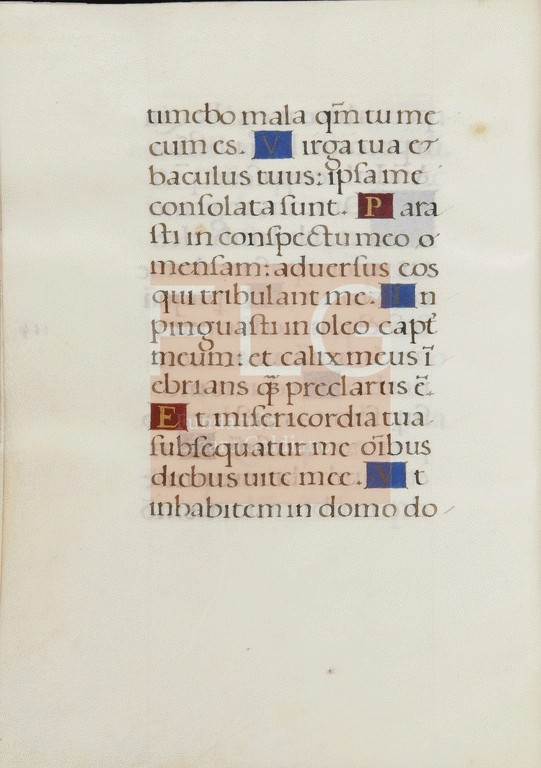 timebo mala qm̄ tu me
cum es. Virga tua &
baculus tuus: ipſa me
conſolata ſunt. Para
ſti in conſpectu meo
menſam: aduerſus eos
qui tribulant me. In
pinguaſti in oleo capt̄
meum: et calix meus ī
ebrians q̄ preclarus ē.
Et miſericordia tua
ſubſequatur me oībus
diebus uite mee. Vt
inhabitem in domo do
FLG